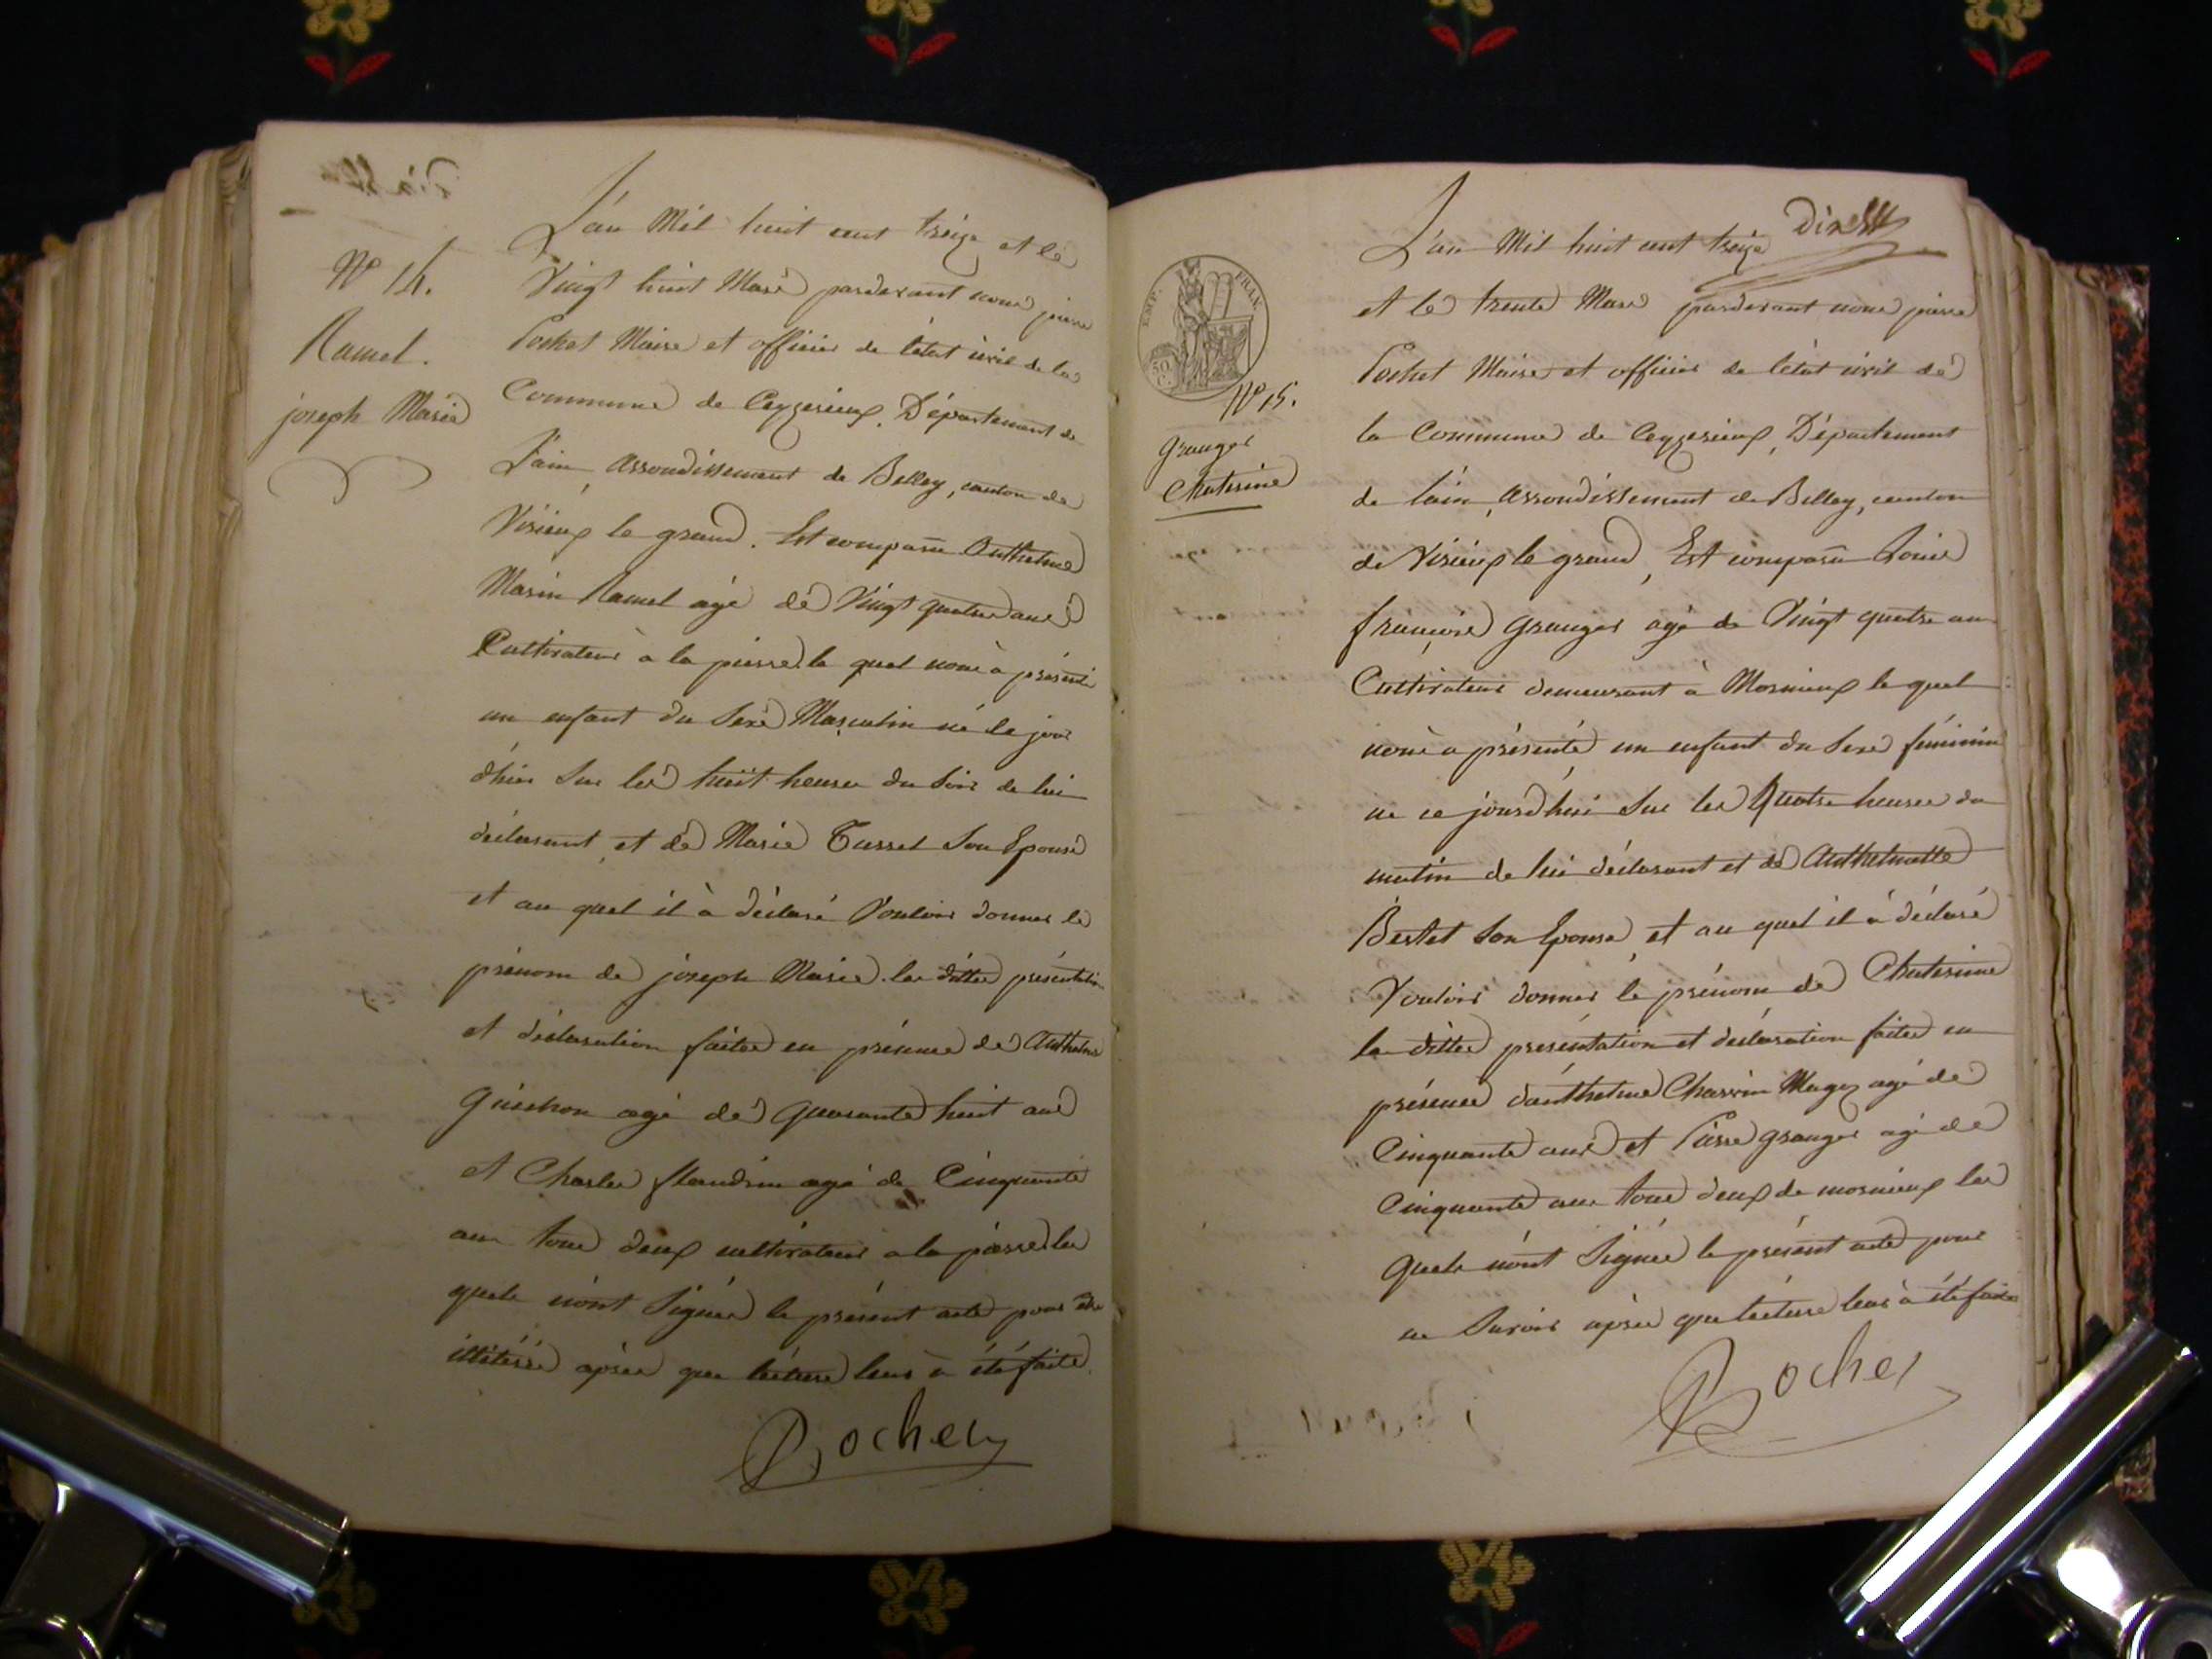 N° 14.
Ramel.
joseph Marie
L'an Mil huit cent treize et le
Vingt huit Mars pardevant nous pierre
Pochet Maire et officier de l'état civil de la
Commune de Ceyzerieux, Département de
L'ain, Arrondissement de Belley, canton de
Virieux le grand. Est comparu Anthelme
Marin Ramel agé de Vingt quatre ans
Cultivateur à la pierre le quel nous à présenté
un enfant du Sexe Masculin né le jour
d'hier Sur les huit heures du Soir de lui
déclarant, et de Marie Tusset Son Epouse
et au quel il à déclaré Vouloir donner le
prénom de joseph Marie. la ditte présentation
et déclaration faites en présence de Anthelme
Guichon agé de quarante huit ans
et Charles flandrin agé de Cinquante
ans tous deux cultivateurs a la pierre les
quels n'ont Signés le présent acte pour être
illitérés après que lecture leur à été faite.
Pochet
EMP. FRAN.
50 C.
N° 15.
granger
Chaterine
L'an Mil huit cent treize
et le trente Mars pardevant nous pierre
Pochet Maire et officier de l'état civil de
la Commune de Ceyzerieux, Département
de l'ain, Arrondissement de Belley, canton
de Virieux le grand, Est comparu Louis
françois granger agé de Vingt quatre ans
Cultivateur demeurant à Mornieux le quel
nous a présenté un enfant du Sexe féminin
né ce jourd'hui Sur les Quatre heures du
matin de lui déclarant et de Anthelmette
Bertet Son Epouse, et au quel il à déclaré
Vouloir donner le prénom de Chaterine
la ditte présentation et déclaration faites en
présence d'anthelme Charvin Magez agé de
Cinquante ans et Pierre granger agé de
Cinquante ans tous deux de mornieux les
quels n'ont Signés le présent acte pour
ne Savoir après que lecture leur à été faite
Pochet